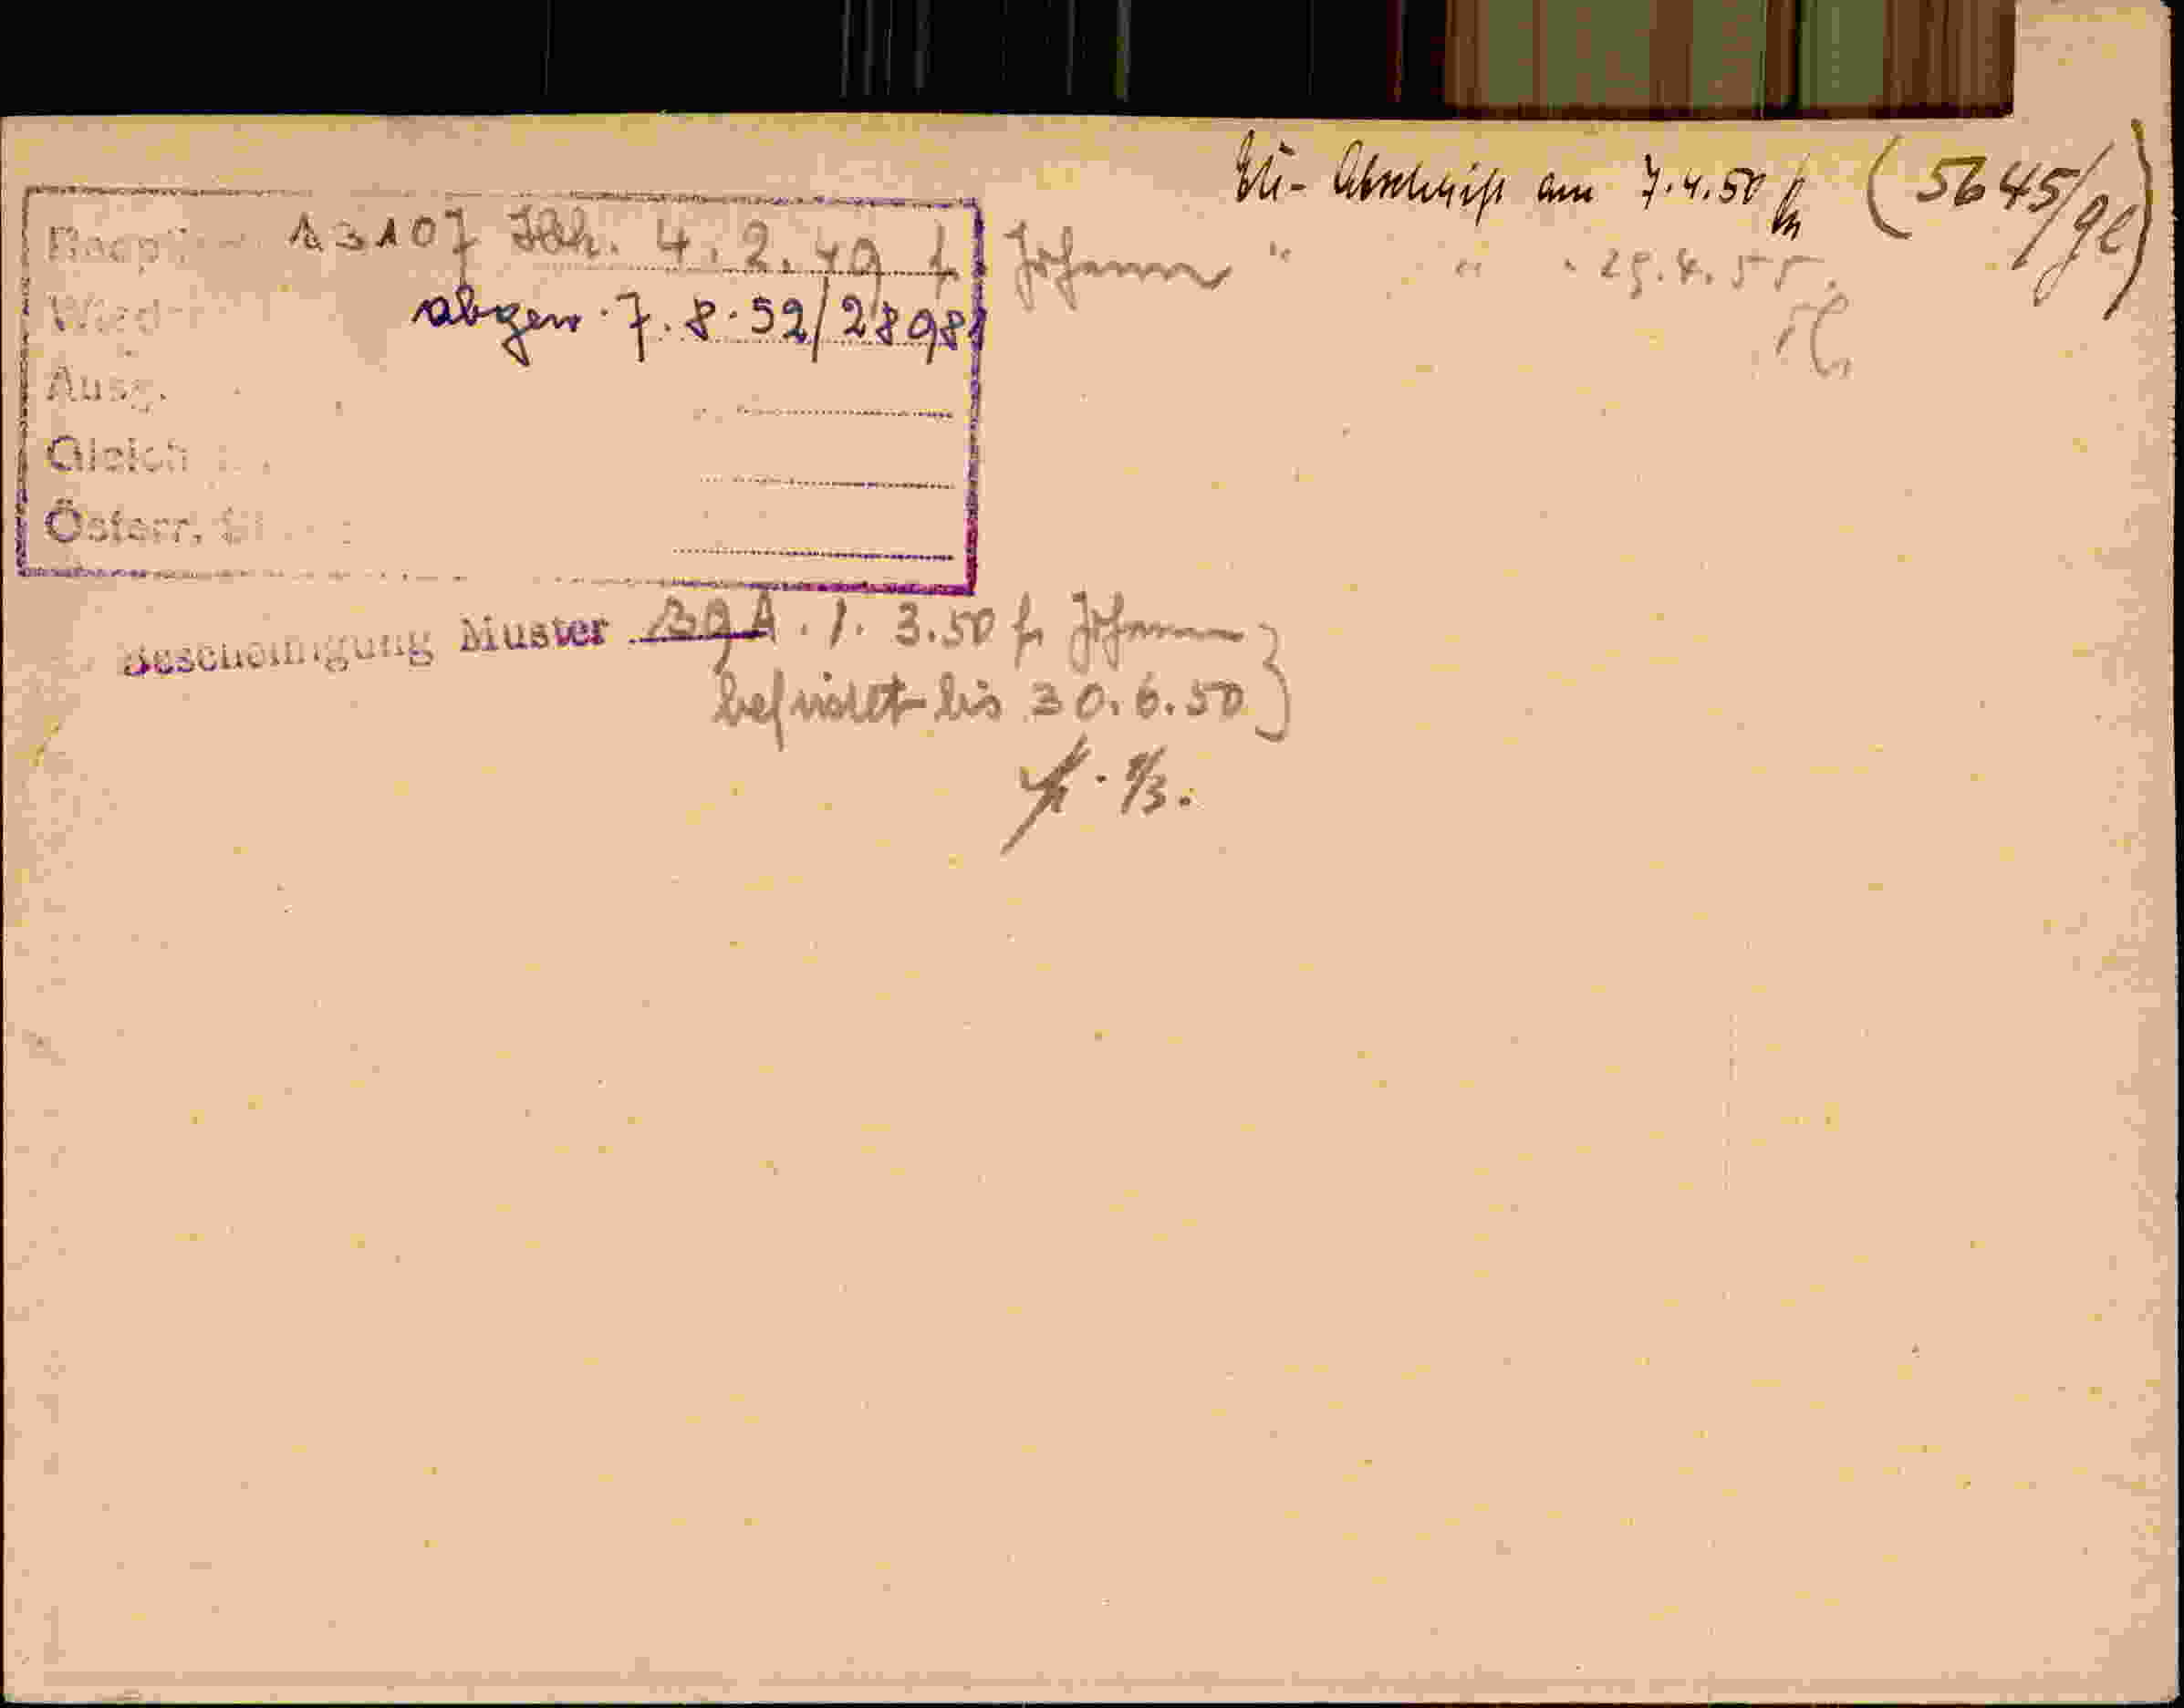 Abschrift am 7.4.50 (5645/gl)
13107 4.2.49 f. Johann " " " 29.4.55.
abgen. 7.8.52/2898
Ausg.
Gleich
Österr. St
Bescheinigung Muster 1.3.50 f. Johann
befristet bis 30.6.50
1/3.